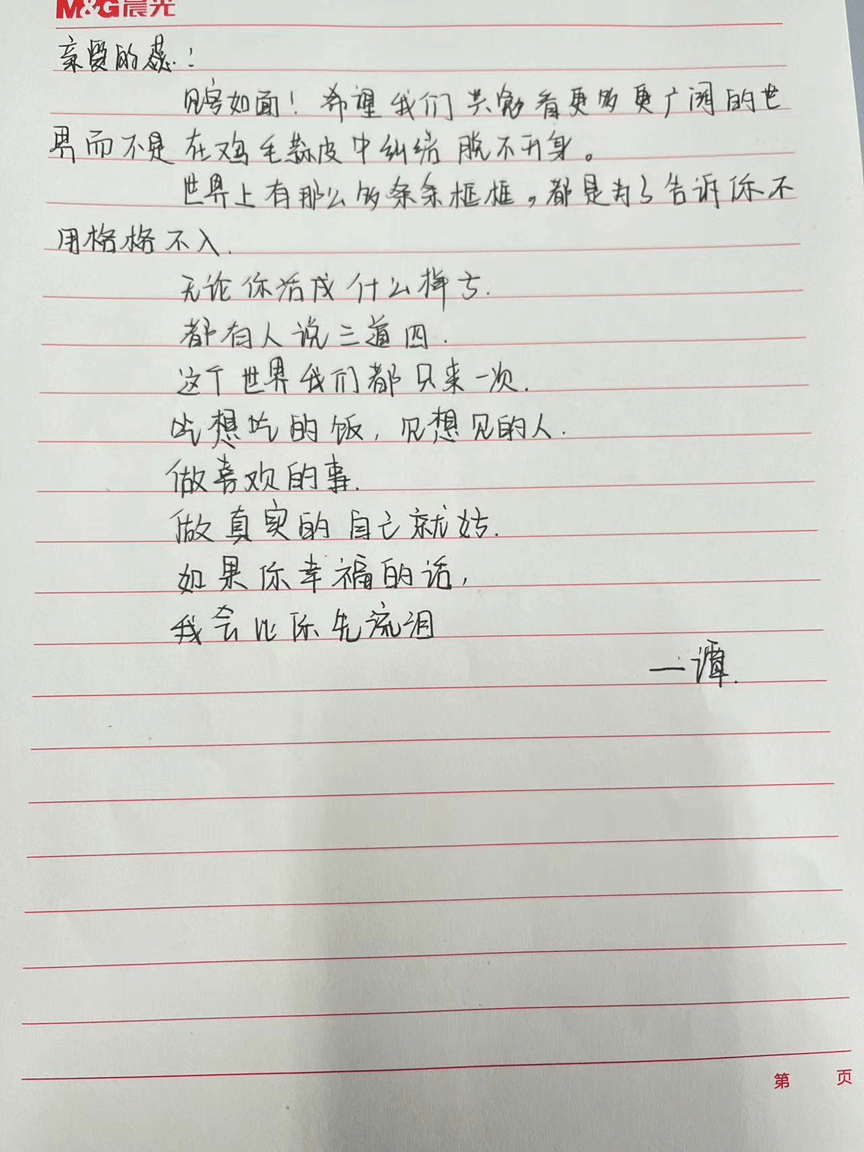 M&G晨光
亲爱的蕊：
见字如面！希望我们共勉看更多更广阔的世
界而不是在鸡毛蒜皮中纠结脱不开身。
世界上有那么多条条框框，都是为了告诉你不
用格格不入.
无论你活成什么样子.
都有人说三道四.
这个世界我们都只来一次.
吃想吃的饭，见想见的人.
做喜欢的事.
做真实的自己就好.
如果你幸福的话，
我会比你先流泪
—谭.
第 页